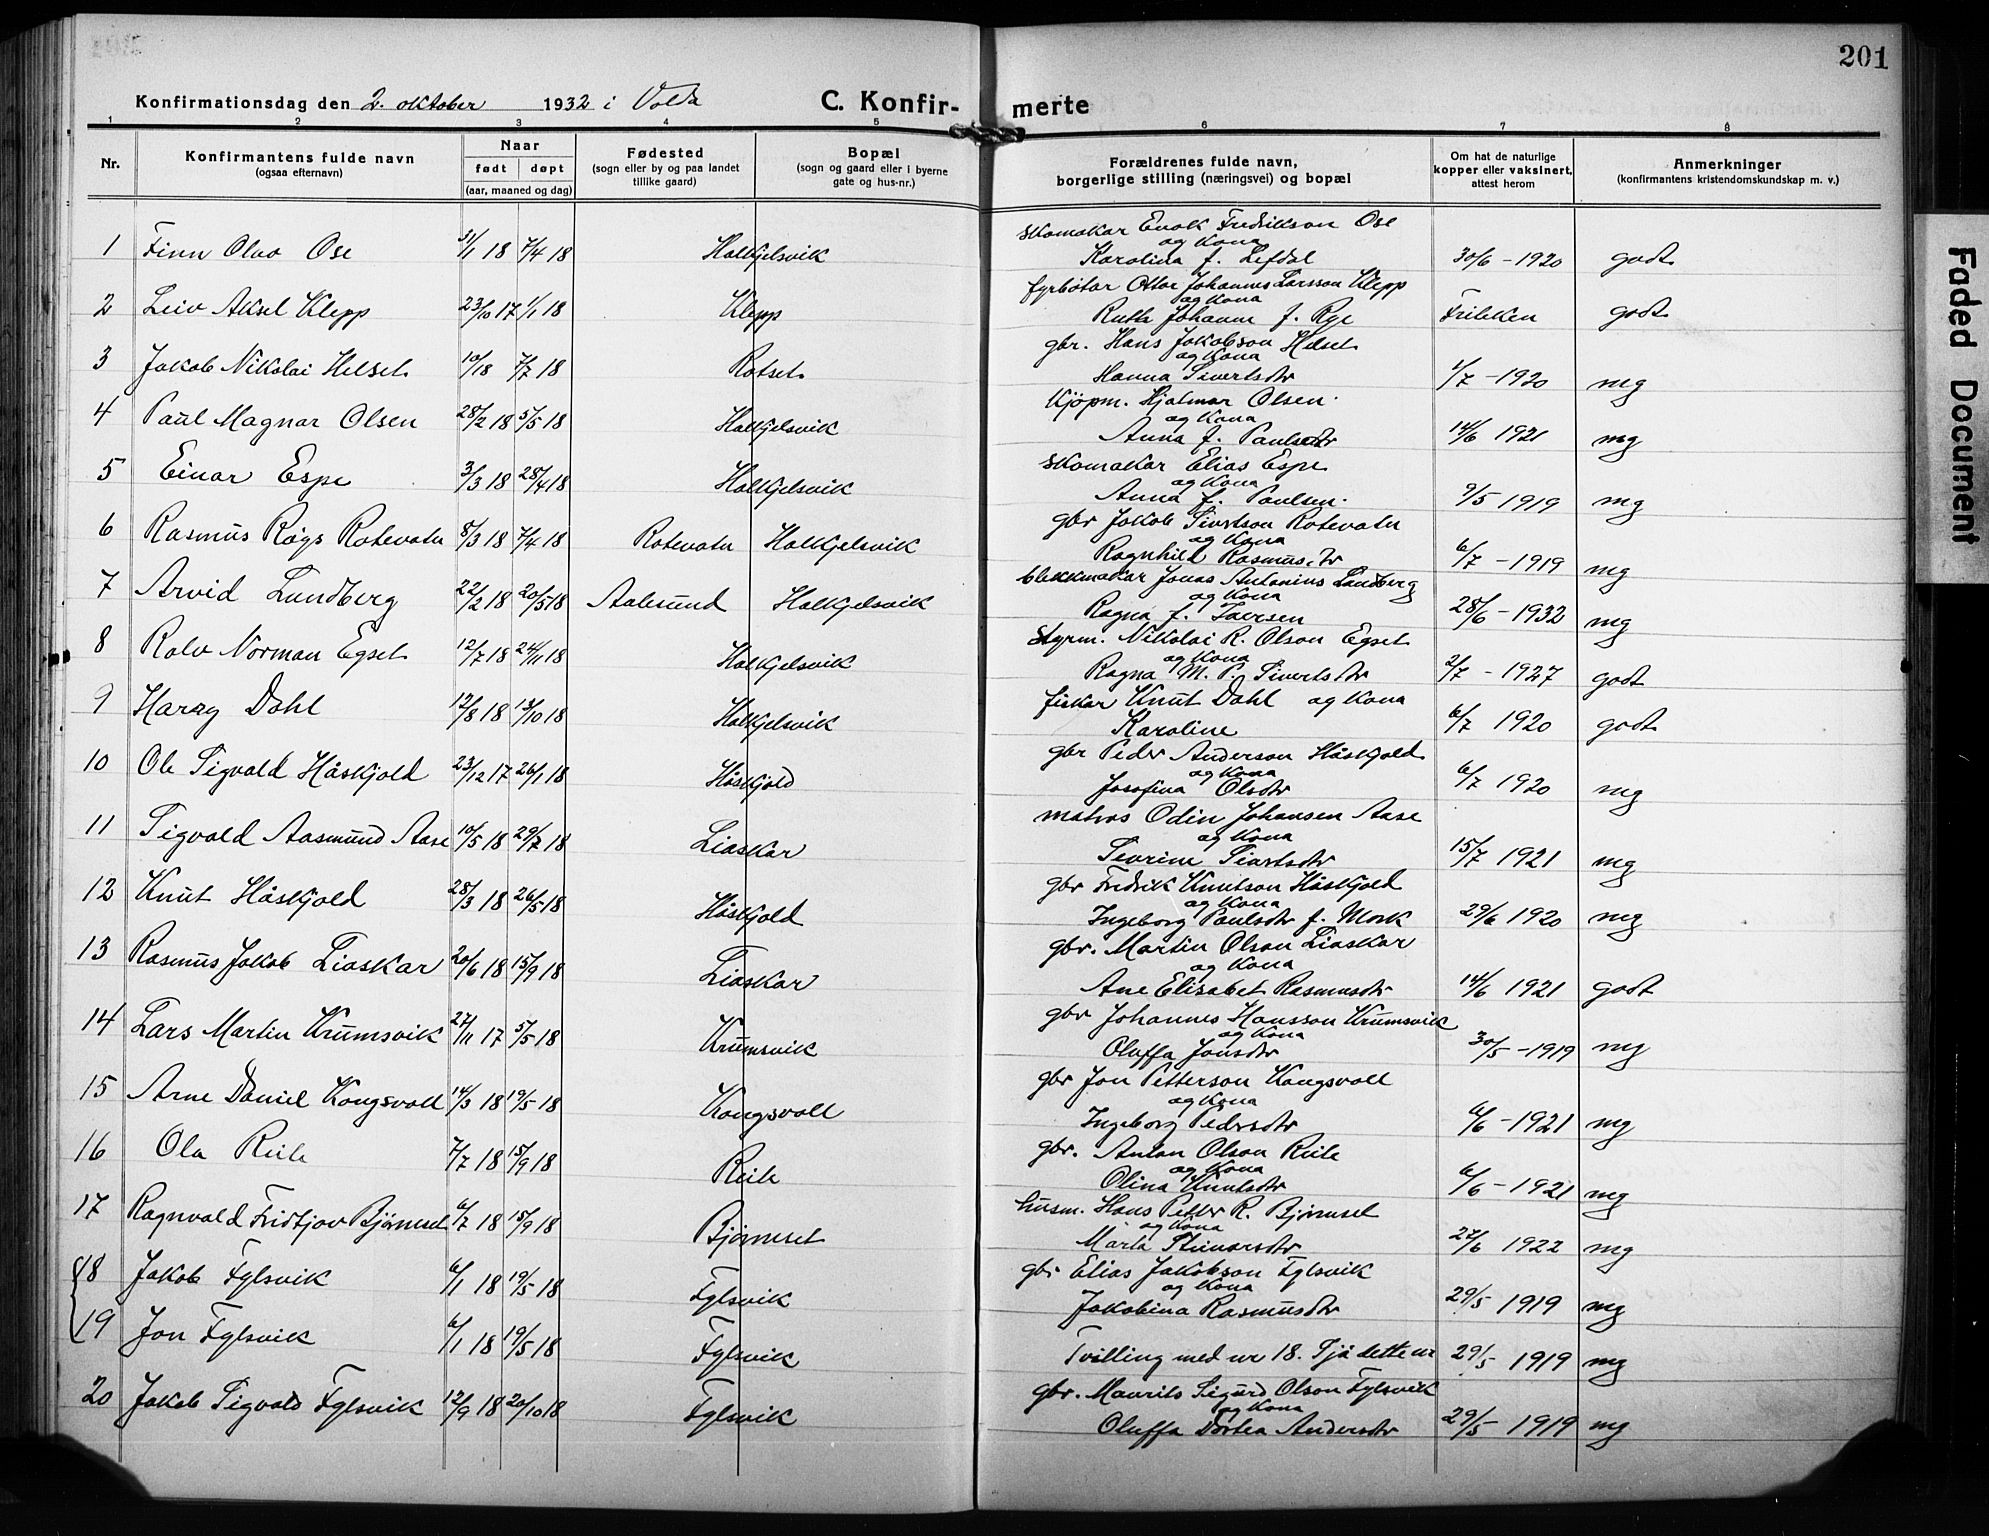 201
Konfirmationsdag den 2. oktober 1932 i Volda
C. Konfir- merte
1 2 3 4 5 6 7 8
Nr.
Konfirmantens fulde navn
(ogsaa efternavn)
Naar
født døpt
(aar, maaned og dag)
Fødested
(sogn eller by og paa landet
tillike gaard)
Bopæl
(sogn og gaard eller i byerne
gate og hus-nr.)
Forældrenes fulde navn,
borgerlige stilling (næringsvei) og bopæl
Om hat de naturlige
kopper eller vaksinert,
attest herom
Anmerkninger
(konfirmantens kristendomskundskap m. v.)
skomakar Enok Fredrikson Ose
og kona
1 Finn Olav Ose 31/1 18 7/4 18 Halkjelsvik Karolina f. Lefdal 30/6 - 1920 godt
fyrbøtar Ottar Johannes Larsson Klepp
og kona
2 Leiv Aksel Klepp 23/10 17 1/1 18 Klepp Ruth Johanne f. Rye Friteken godt
gbr. Hans Jakobson Helset
og kona
3 Jakob Nikolai Helset 19/18 7/7 18 Rotset Hanna Sivertsdtr 1/7 - 1920 mg
Kjøpm. Hjalmar Olsen
og kona
4 Paul Magnar Olsen 28/2 18 5/5 18 Halkjelsvik Anna f. Paulsdtr 14/6 1921 mg
skomakar Elias Espe
og kona
5 Einar Espe 3/3 18 28/4 18 Halkjelsvik Anna f. Paulsen. 9/5 1919 mg
gbr Jakob Sivertson Rotevatn
og kona
6 Rasmus Røgs Rotevatn 8/3 18 7/4 18 Rotevatn Halkjelsvik Ragnhild Rasmusdtr 6/7 - 1919 mg
blekkmakar Jonas Antonius Lundberg
og kona
7 Arvid Lundberg 22/2 18 20/5 18 Aalesund Halkjelsvik Ragna f. Iversen 28/6 - 1932 mg
Styrm. Nikolai R. Olson Egset
og kona
8 Rolv Norman Egset 12/7 18 24/11 18 Halkjelsvik Ragna M. P. Sivertsdtr 2/7 - 1927 godt
fiskar Knut Dahl og kona
9 Harry Dahl 12/8 18 13/10 18 Halkjelsvik Karoline 6/7 1920 godt
gbr Peder Anderson Håskjold
og kona
10 Ole Sigvald Håskjold 23/12 17 26/1 18 Håskjold Josefina Olsdtr 6/7 1920 mg
matros Odin Johansen Aase
og kona
11 Sigvald Aasmund Aase 10/5 18 29/7 18 Liaskar Sevrine Sivertsdtr 15/7 1921 mg
gbr Fredrik Knutson Håskjold
og kona
12 Knut Håskjold 28/3 18 26/5 18 Håskjold Ingeborg Paulsdtr f. Mork 29/6 1920 mg
gbr. Martin Olson Liaskar
og kona
13 Rasmus Jakob Liaskar 20/6 18 15/9 18 Liaskar Ane Elisabet Rasmusdtr 14/6 1921 godt
gbr Johannes Hansson Krumsvik
og kona
14 Lars Martin Krumsvik 27/11 17 5/5 18 Krumsvik Oluffa Jonsdtr 30/5 - 1919 mg
gbr Jon Petterson Kongsvoll
og kona
15 Arne Daniel Kongsvoll 14/3 18 19/5 18 Kongsvoll Ingeborg Pedersdtr 6/6 - 1921 mg
gbr. Anton Olson Reite
og kona
16 Ola Reite 7/7 18 15/9 18 Reite Olina Knutsdtr 6/6 - 1921 mg
husm. Hans Petter R. Bjørneset
og kona
17 Ragnvald Fridtjov Bjørneset 6/7 18 15/9 18 Bjørneset Marta Steinarsdtr 27/6 1922 mg
gbr Elias Jakobson Fylsvik
og kona
18 Jakob Fylsvik 6/1 18 19/5 18 Fylsvik Jakobina Rasmusdtr 29/5 1919 mg
19 Jon Fylsvik 6/1 18 19/5 18 Fylsvik Tvilling med nr 18. Sjå dette nr 29/5 1919 mg
gbr. Maurits Sigurd Olson Fylsvik
og kona
20 Jakob Sigvald Fylsvik 12/9 18 20/10 18 Fylsvik Oluffa Dortea Andersdtr 29/5 - 1919 mg
Faded Document